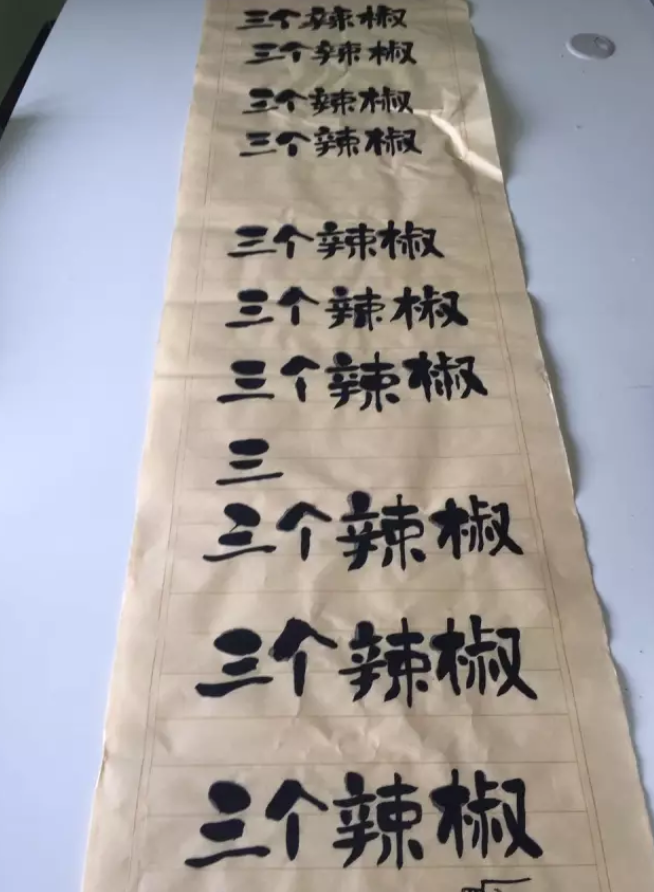 三个辣椒
三个辣椒
三个辣椒
三个辣椒
三个辣椒
三个辣椒
三个辣椒
三
三个辣椒
三个辣椒
三个辣椒